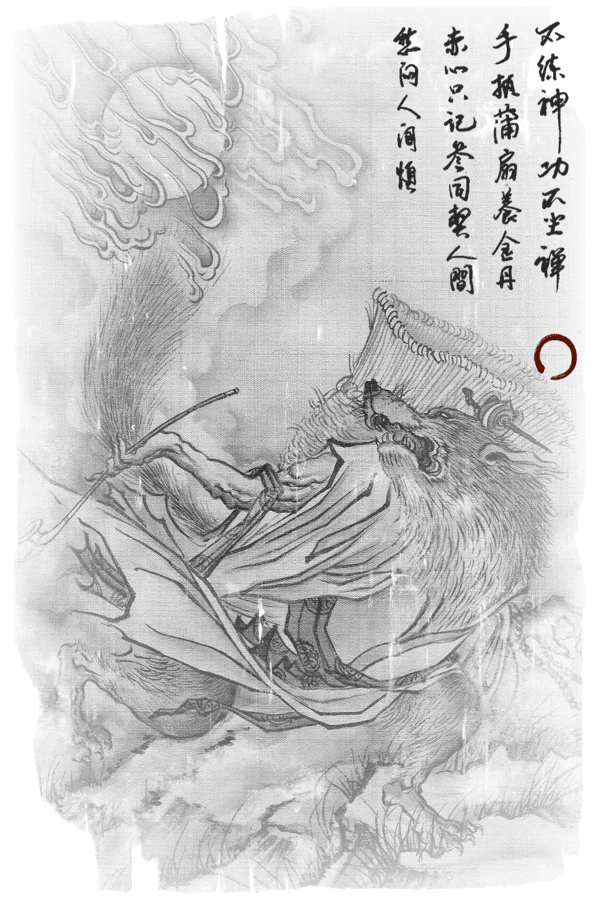 不练神功不坐禅
手蒲扇养金丹
赤心只记参同契人間
愁闷人间惯